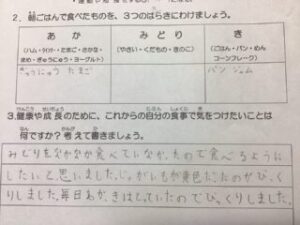 2. 朝ごはんで食べたものを、3つのはらきにわけましょう。
あか
(ハム・ウイト・たまご・さかな・まめ・ぎゅうにゅう・ヨーグルト)
みどり
(やさい・くだもの・きのこ)
き
(ごはん・パン・めん
コーンフレーク)
ぎゅうにゅう たまご
パン ジャム
3.健康や成長のために、これからの自分の食事で気をつけたいことは
何ですか? 考えて書きましょう。
みどりをなかなか食べていなかったので食べるように
したいと思いました。じゃがいもが黄色だったのがびっく
りしました。毎日あか、きはとっていたのでびっくりしました。